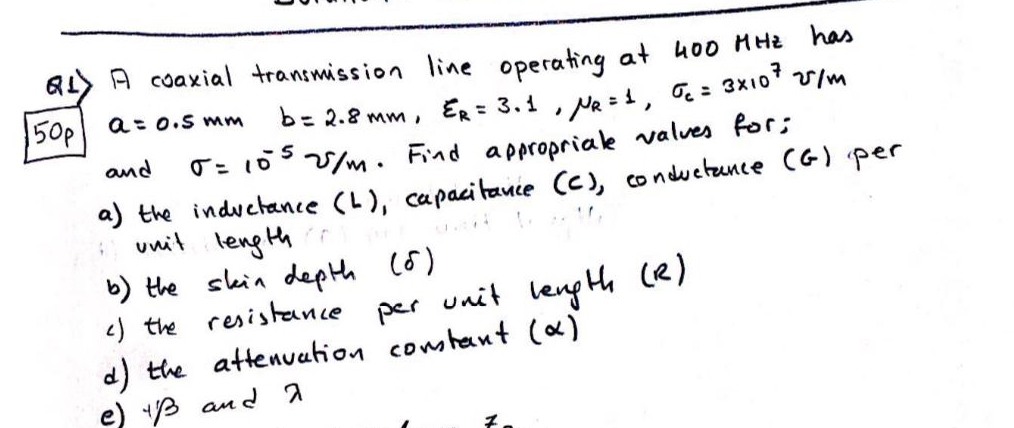 Q1) A coaxial transmission line operating at 400 MHz has
50p
a = 0.5 mm b = 2.8 mm, εR = 3.1, μR = 1, σc = 3x10⁷ ℧/m
and σ = 10⁻⁵ ℧/m. Find appropriate values for;
a) the inductance (L), capacitance (C), conductance (G) per
unit length
b) the skin depth (δ)
c) the resistance per unit length (R)
d) the attenuation constant (α)
e) β and λ